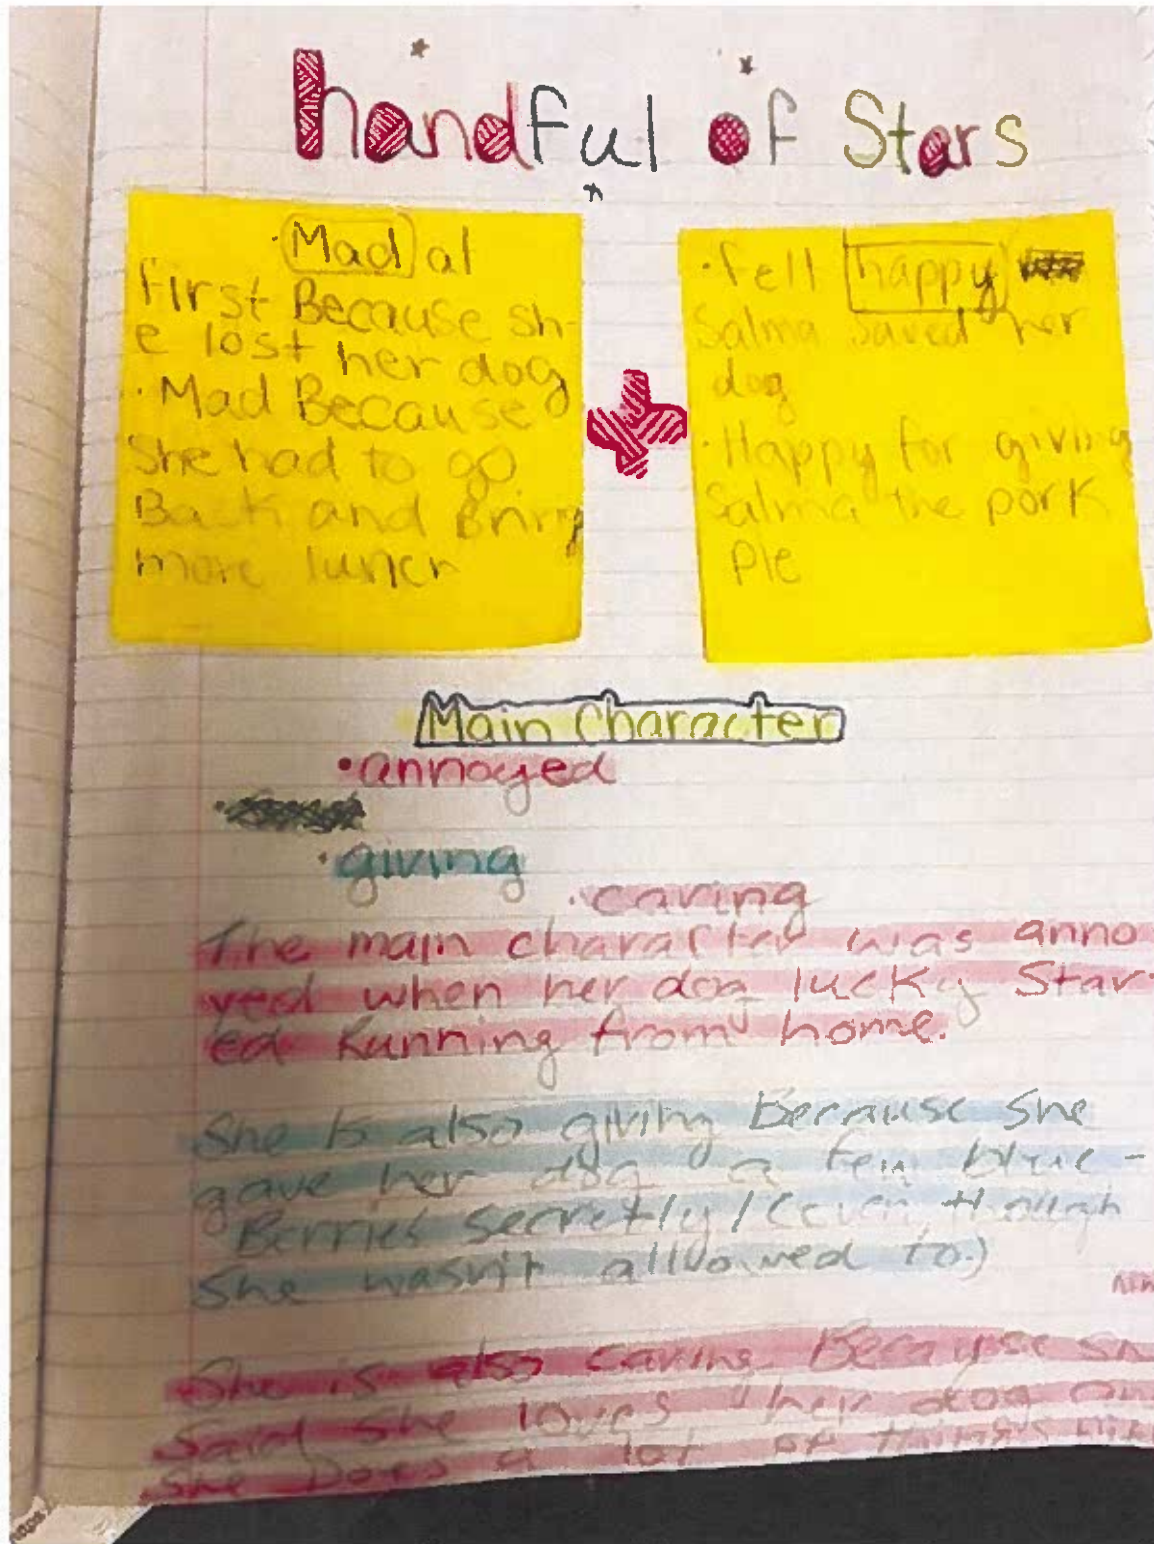 handful of Stars
· Mad at
first Because sh-
e lost her dog
· Mad Because
She had to go
Back and Bring
more lunch
· fell happy
Salma saved her
dog
· Happy for giving
Salma the pork
Pie
Main Character
· annoyed
· giving
· caring
The main character was anno
yed when her dog lucky Start
ed Running from home.
She is also giving Because She
gave her dog a few blue -
Berries secretly (even though
She wasn't allwowed to.)
She is also caring Because sh
Said She loves her dog an
She Does a lot of things